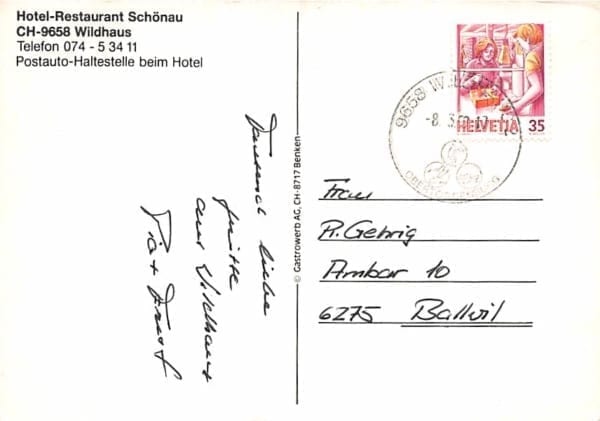 Hotel-Restaurant Schönau
CH-9658 Wildhaus
Telefon 074 - 5 34 11
Postauto-Haltestelle beim Hotel
Tausend liebe
Grüsse
aus Wildhaus
© Gastrowerb AG, CH-8717 Benken
HELVETIA 35
9658
-8. 3.
Frau
R. Gehrig
Ambar 10
6275 Ballwil